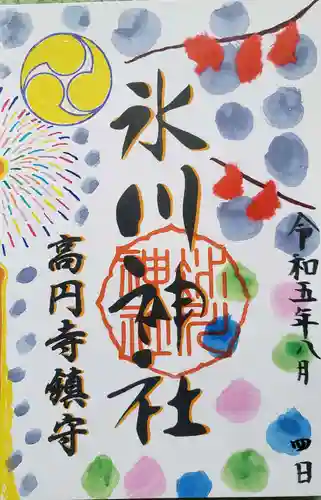 令和五年八月四日
氷川神社
高円寺鎮守